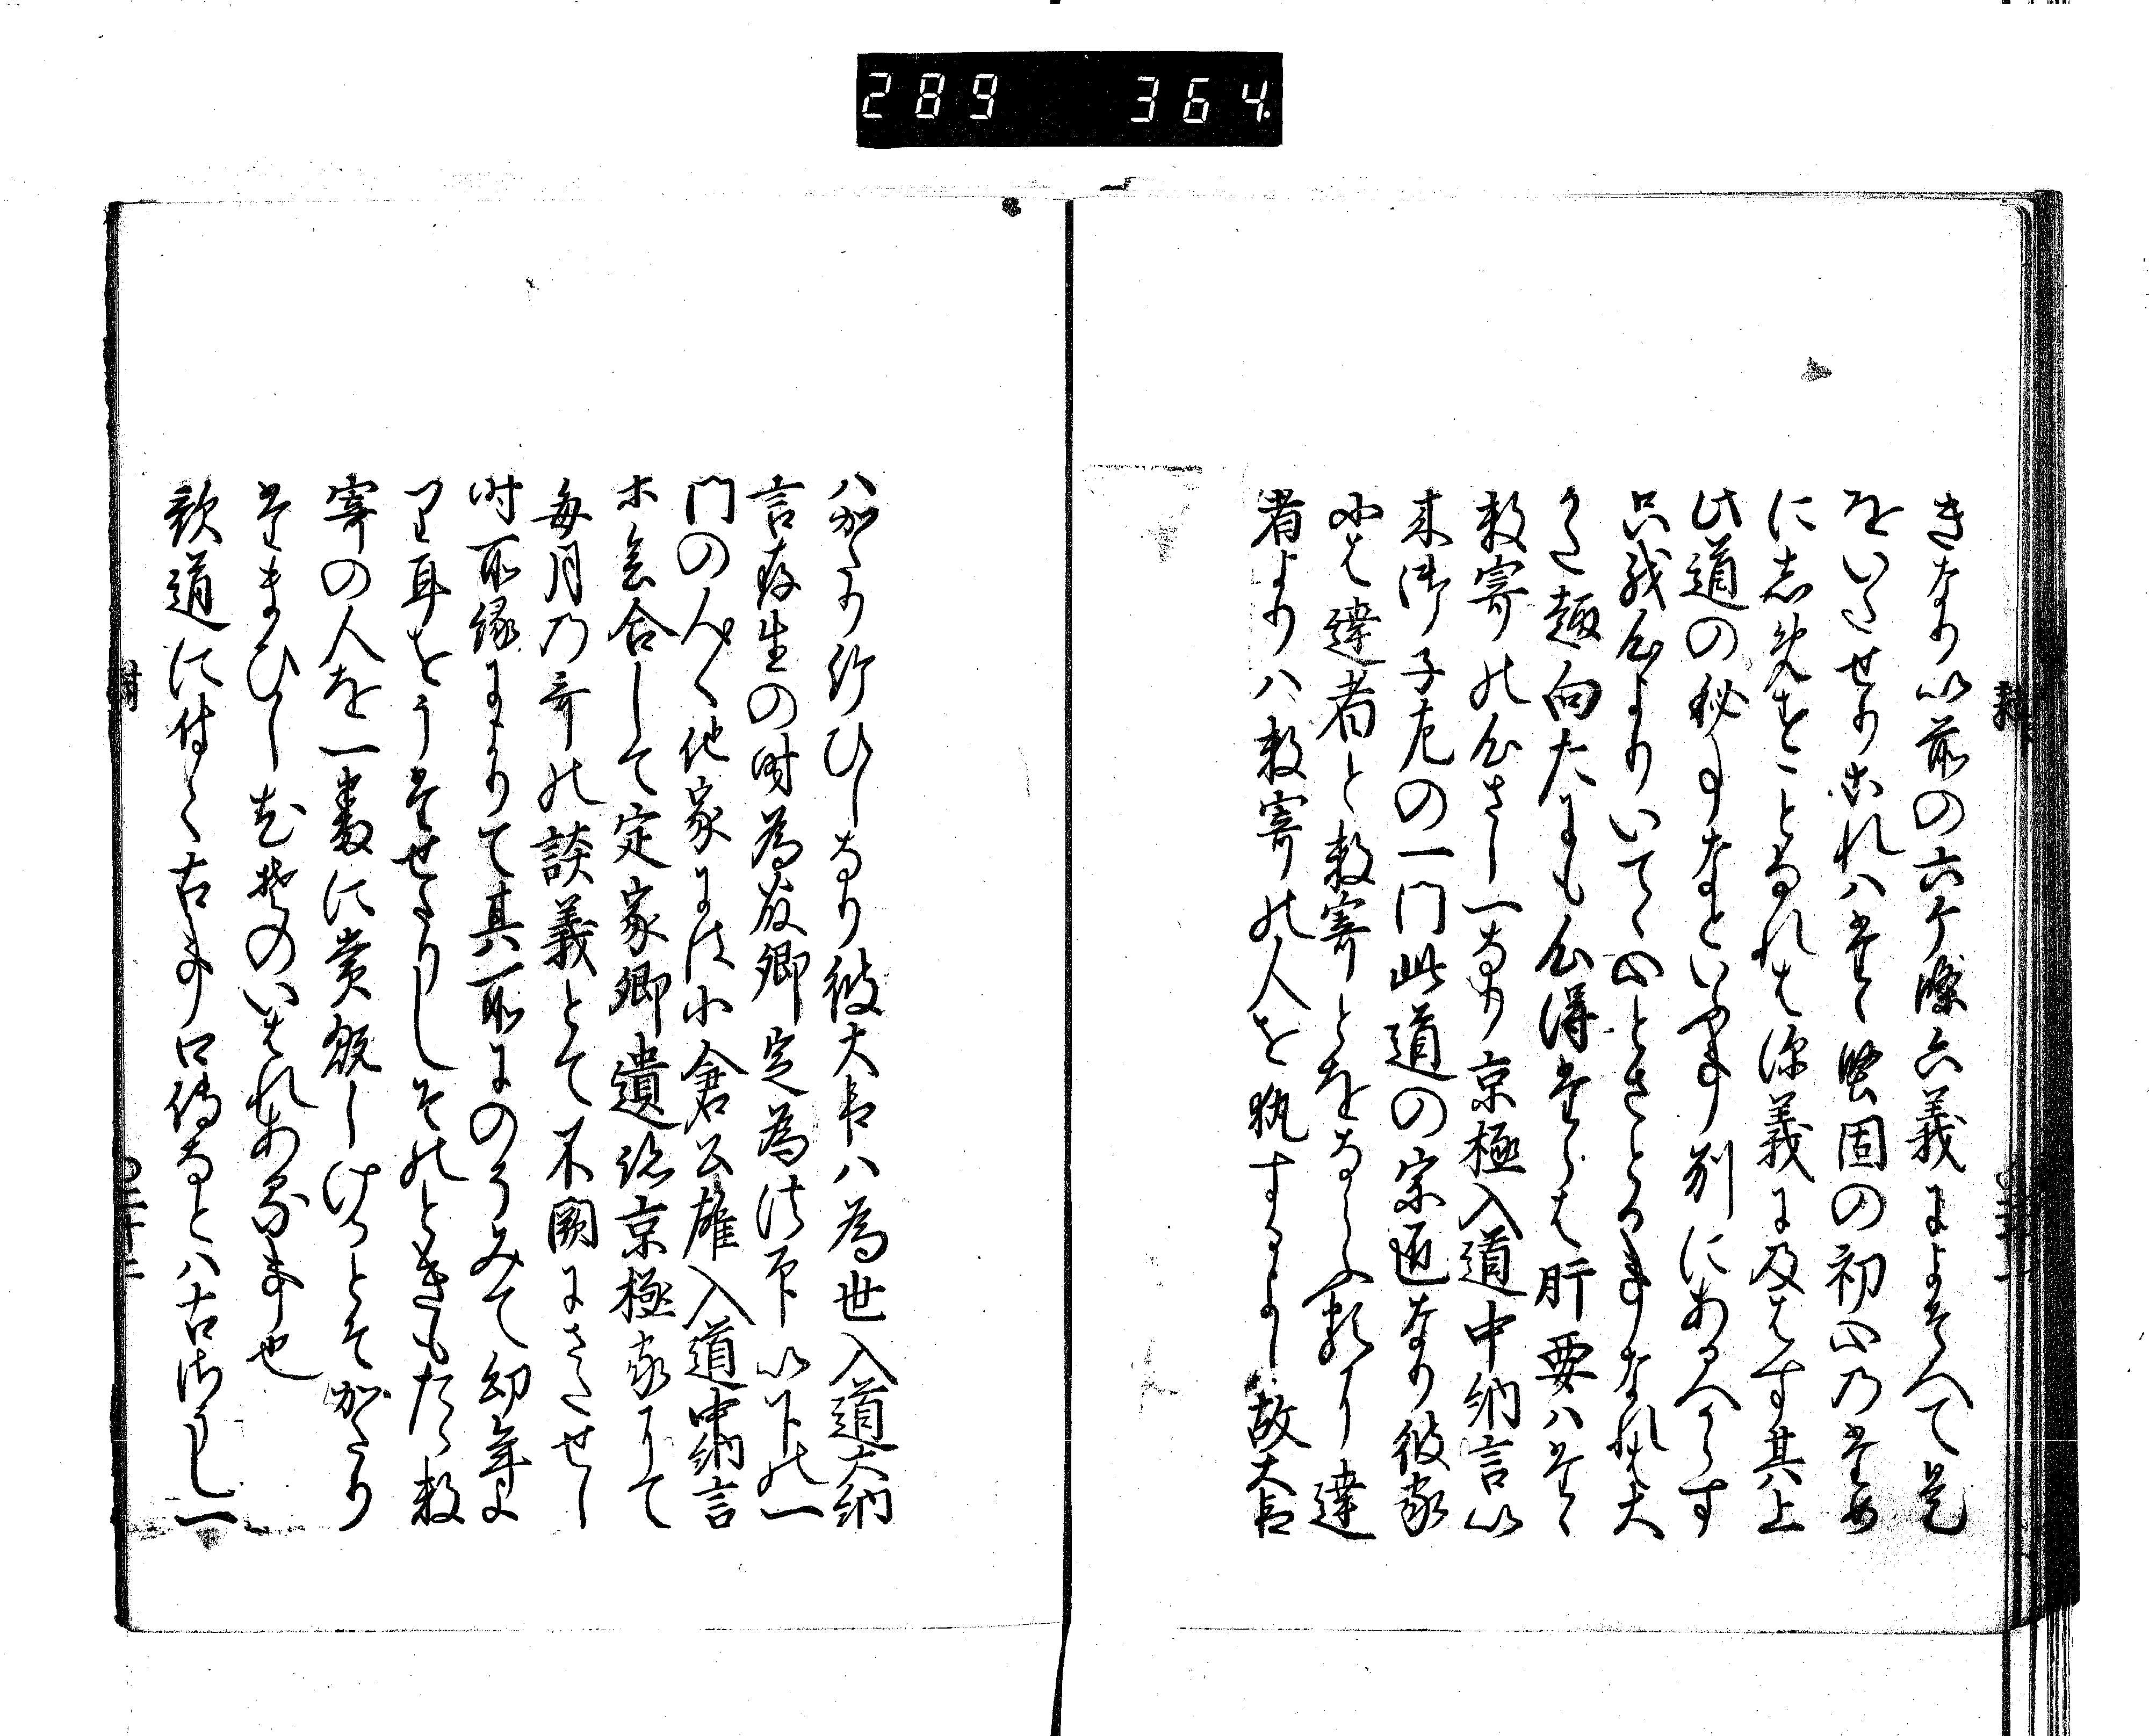 289 364
きなり以前の六ケ条六義によそへて是
をいたせりされハまつ堅固の初心のため
に志めすことなれは深義に及はす其上
此道の秘事なといふ事別にあるへからす
只我心よりいてゝ心とさとる事なれ共大
かた趣向たにも心得たらは肝要ハまつ
数寄の心さし一なり京極入道中納言以
来御子左の一門此道の宗匠なり彼家
にも達者と数寄とをならへ
者よりハ数寄の人を執するよし故大臣
ハかたり給ひしなり彼大臣ハ為世入道大納
言存生の時為藤卿定為法印以下の一
門の人々他家には小倉公雄入道中納言
ホ会合して定家卿遺跡京極家にて
毎月の哥の談義とて不闕にさたせし
時所縁によりて其所にのそみて幼年よ
り耳をうたせたりしそのときもたゝ数
寄の人を一番に賞翫しけるとそかたり
たまひしむ其のいはれある事也
歌道に付て古事口伝なとハ古法にし一